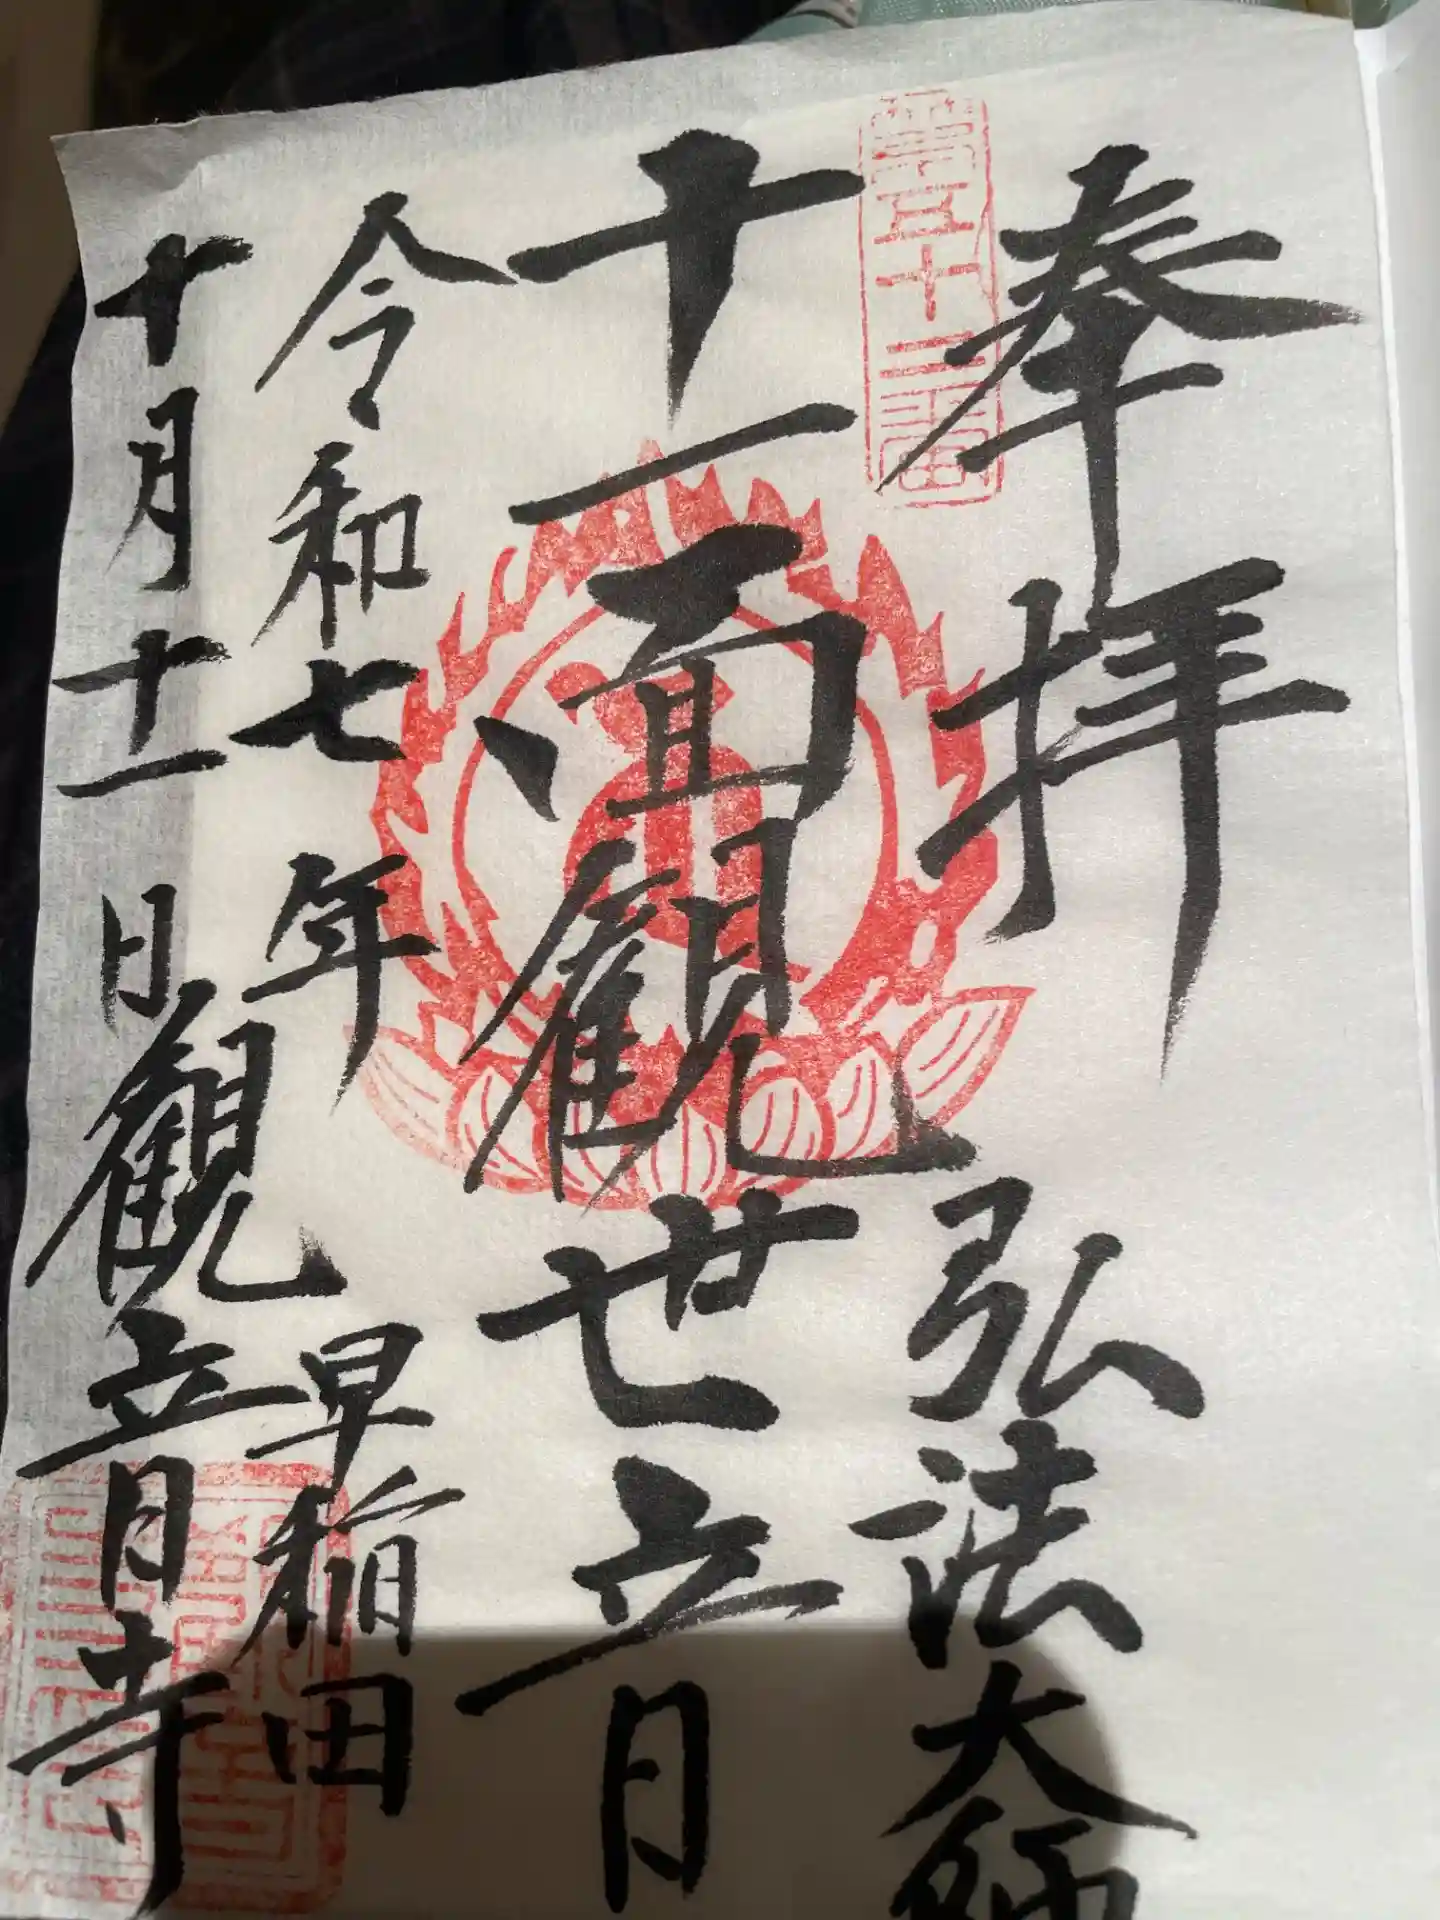 奉拝
弘法大師
第五十二番
十一面観世音
令和七年
早稲田
十月十一日
観音寺